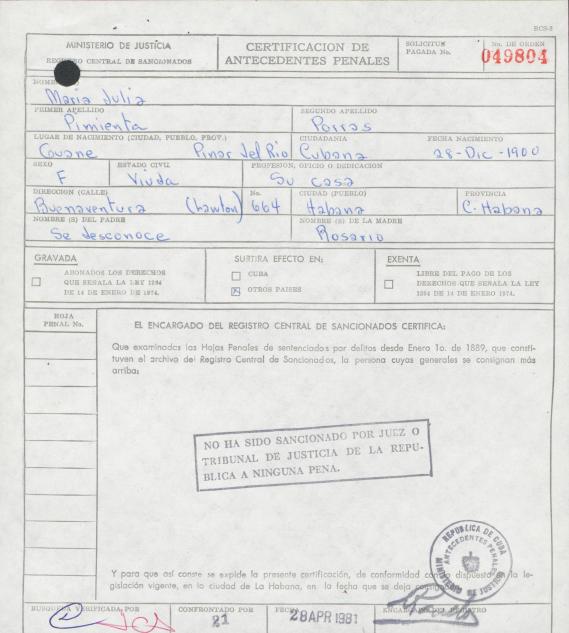 RCS-3
MINISTERIO DE JUSTICIA
REGISTRO CENTRAL DE SANCIONADOS
CERTIFICACION DE
ANTECEDENTES PENALES
SOLICITUD
PAGADA No.
No. DE ORDEN
049804
NOMBRE
Maria Julia
PRIMER APELLIDO SEGUNDO APELLIDO
Pimienta Porras
LUGAR DE NACIMIENTO (CIUDAD, PUEBLO, PROV.) CIUDADANIA FECHA NACIMIENTO
Guane Pinar del Rio Cubana 28-Dic-1900
SEXO ESTADO CIVIL PROFESION, OFICIO O DEDICACION
F Viuda Su casa
DIRECCION (CALLE) No. CIUDAD (PUEBLO) PROVINCIA
Buenaventura (Lawton) 664 Habana C. Habana
NOMBRE (S) DEL PADRE NOMBRE (S) DE LA MADRE
Se desconoce Rosario
GRAVADA
ABONADOS LOS DERECHOS
QUE SEÑALA LA LEY 1264
DE 14 DE ENERO DE 1974.
SURTIRA EFECTO EN:
CUBA
OTROS PAISES
EXENTA
LIBRE DEL PAGO DE LOS
DERECHOS QUE SEÑALA LA LEY
1264 DE 14 DE ENERO 1974.
HOJA
PENAL No.
EL ENCARGADO DEL REGISTRO CENTRAL DE SANCIONADOS CERTIFICA:
Que examinadas las Hojas Penales de sentenciados por delitos desde Enero 1o. de 1889, que consti-
tuyen el archivo del Registro Central de Sancionados, la persona cuyas generales se consignan más
arriba:
NO HA SIDO SANCIONADO POR JUEZ O
TRIBUNAL DE JUSTICIA DE LA REPU-
BLICA A NINGUNA PENA.
REPUBLICA DE CUBA
ANTECEDENTES PENALES
MINISTERIO DE JUSTICIA
Y para que así conste se expide la presente certificación, de conformidad con lo dispuesto en la le-
gislación vigente, en la ciudad de La Habana, en la fecha que se deja consignada.
BUSQUEDA VERIFICADA POR CONFRONTADO POR FECHA ENCARGADO DEL REGISTRO
21 28 APR 1981